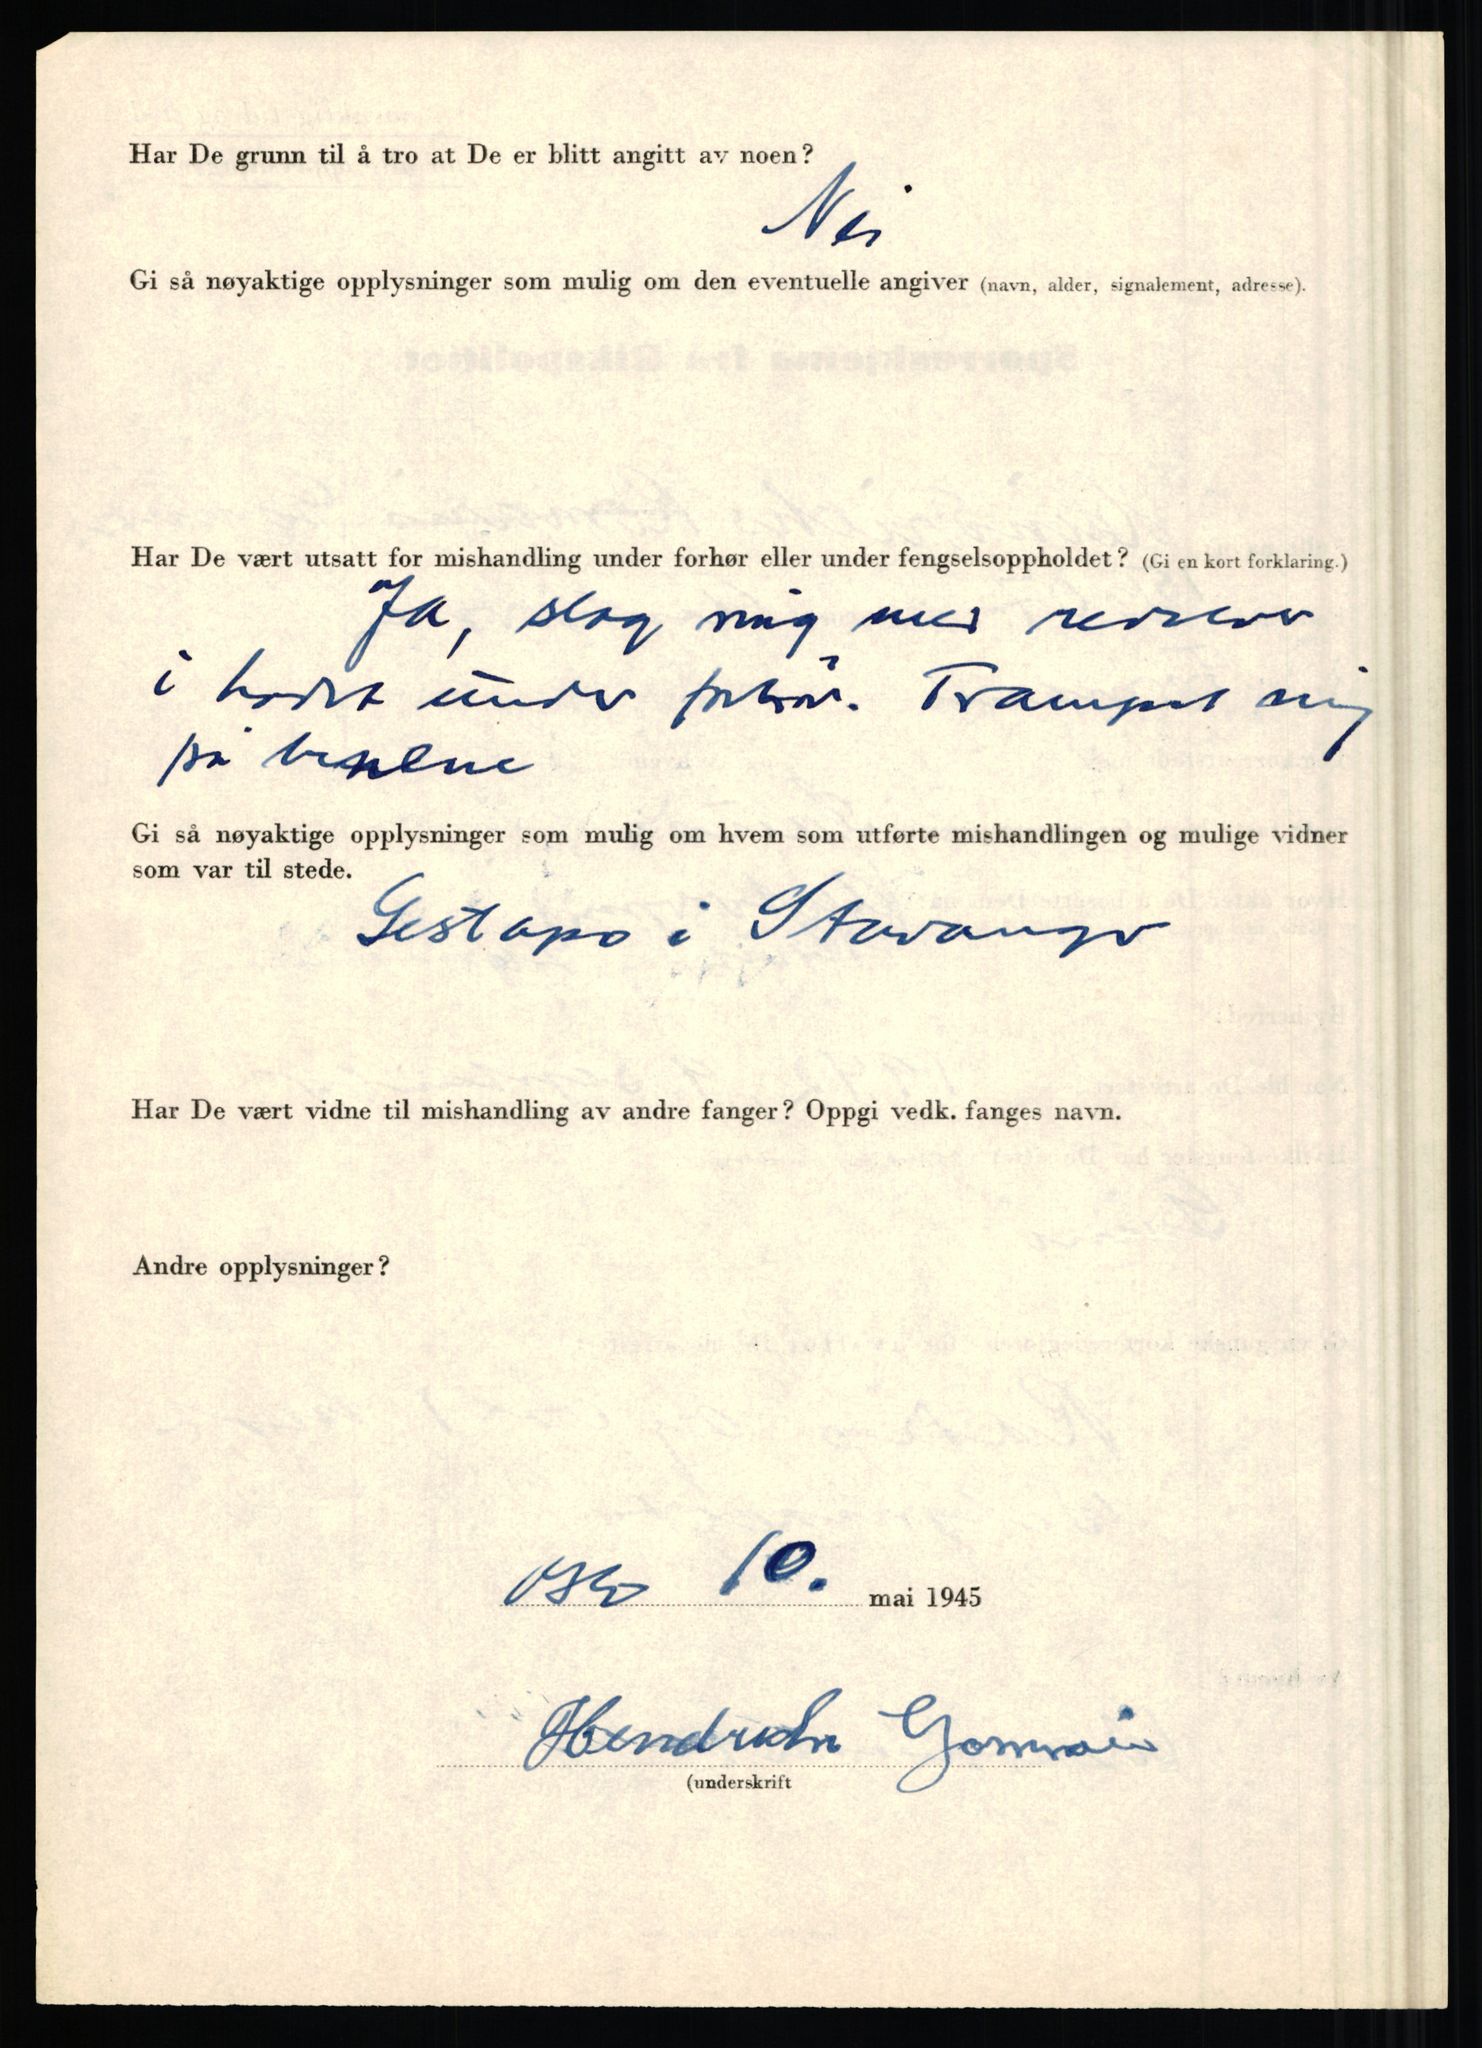 Har De grunn til å tro at De er blitt angitt av noen?
Nei
Gi så nøyaktige opplysninger som mulig om den eventuelle angiver (navn, alder, signalement, adresse).
Har De vært utsatt for mishandling under forhør eller under fengselsoppholdet? (Gi en kort forklaring.)
Ja, slog mig med revolver
i hodet under forhør. Trampet mig
på benene
Gi så nøyaktige opplysninger som mulig om hvem som utførte mishandlingen og mulige vidner
som var til stede.
Gestapo i Stavanger
Har De vært vidne til mishandling av andre fanger? Oppgi vedk. fanges navn.
Andre opplysninger?
Oslo 10. mai 1945
(underskrift